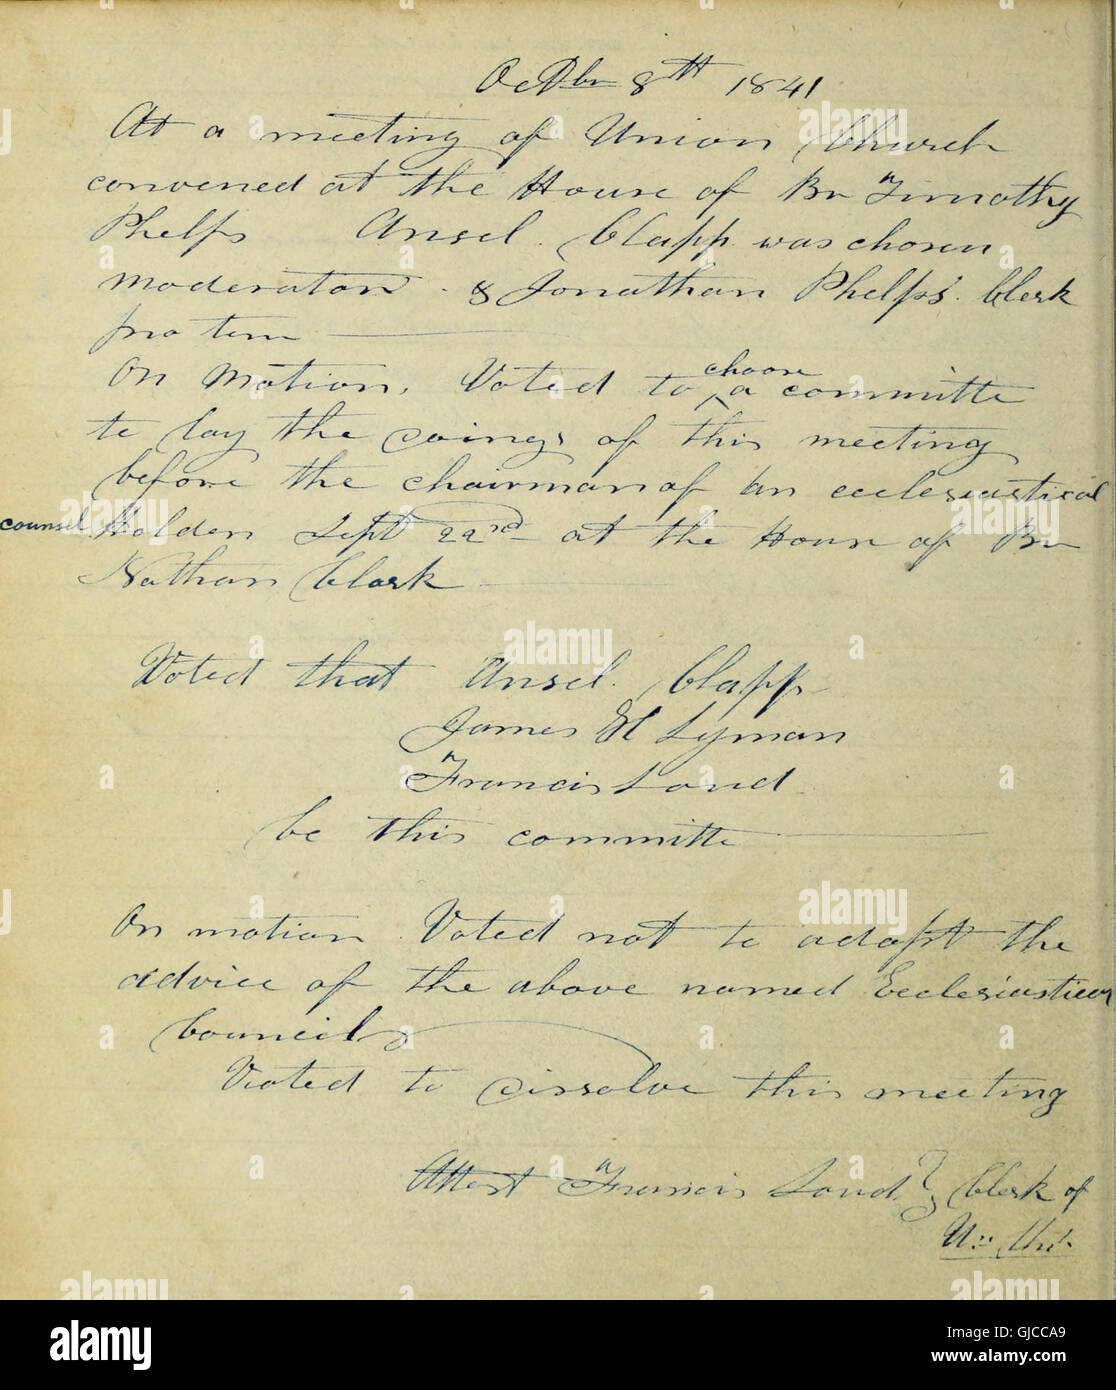 Octbr 8th 1841
At a meeting of Union Church
convened at the House of Br Timothy
Phelps Ansel Clapp was chosen
moderator & Jonathan Phelps Clerk
pro tem
On Motion, Voted to choose a committe
to lay the doings of this meeting
before the chairman of an ecclesiastical
counsel Holden Sept 22nd at the House of Br
Nathan Clark
Voted that Ansel Clapp
James H Lyman
Francis Loud
be this committe
On motion Voted not to adopt the
advice of the above named Ecclesiastical
Council
Voted to dissolve this meeting
Attest Francis Loud } Clerk of
Un Chh
alamy
Image ID: GJCCA9
www.alamy.com